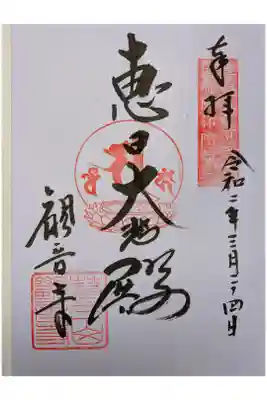 奉拝
令和二年三月二十四日
恵日大悲殿
観音寺